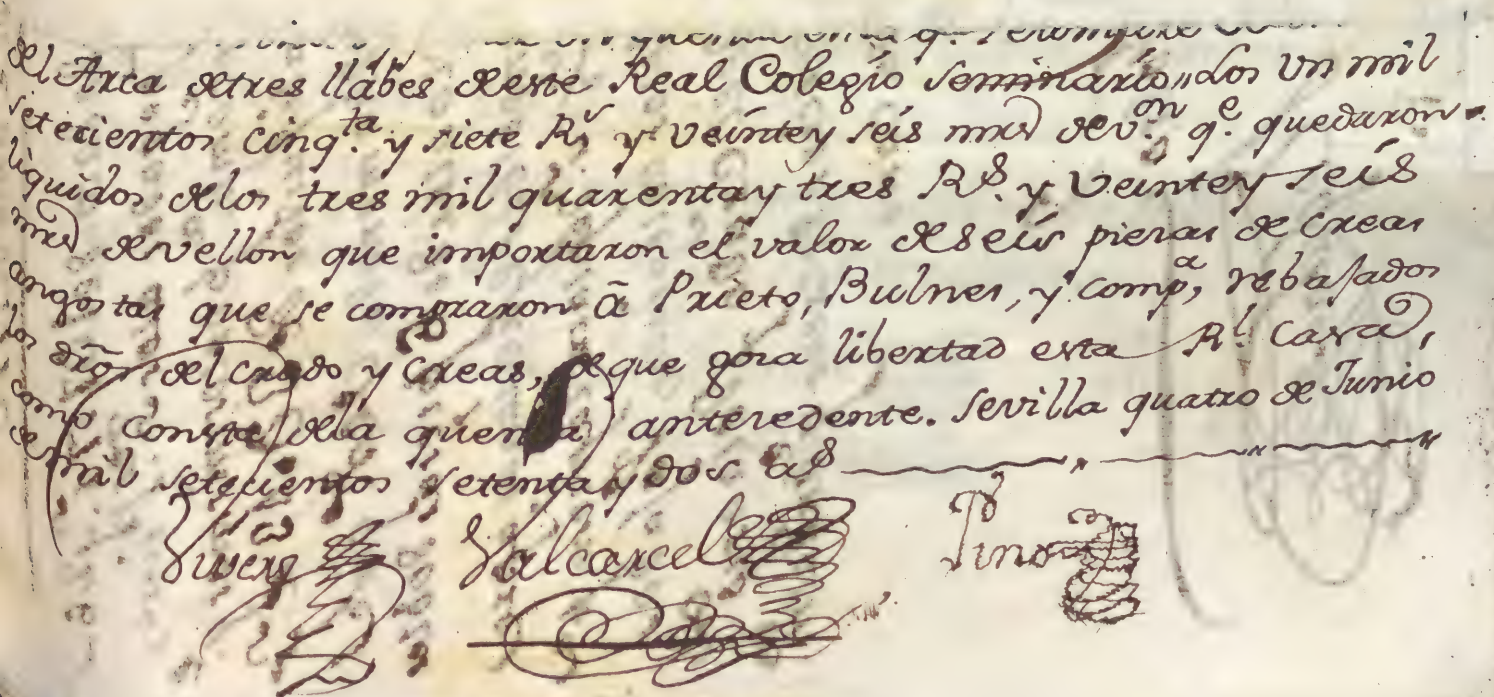 del Arca de tres llabes de este Real Colegio Seminario, dos Un mil
setecientos cinq.ta y siete R.s y veinte y seis mrs de v.on q.e quedaron
liquidos de los tres mil quarenta y tres R.s y veinte y seis
mrs de vellon que importaron el valor de seis piezas de Creas
angostas que se compraron â Prieto, Bulnes, y Comp.a, rebajados
los dr̃os del crudo y Creas, de que goza libertad esta R.l Casa,
como consta de la quenta antecedente. Sevilla quatro de Junio
de mil setecientos setenta y dos a.s
Vivero Valcarcel Pino